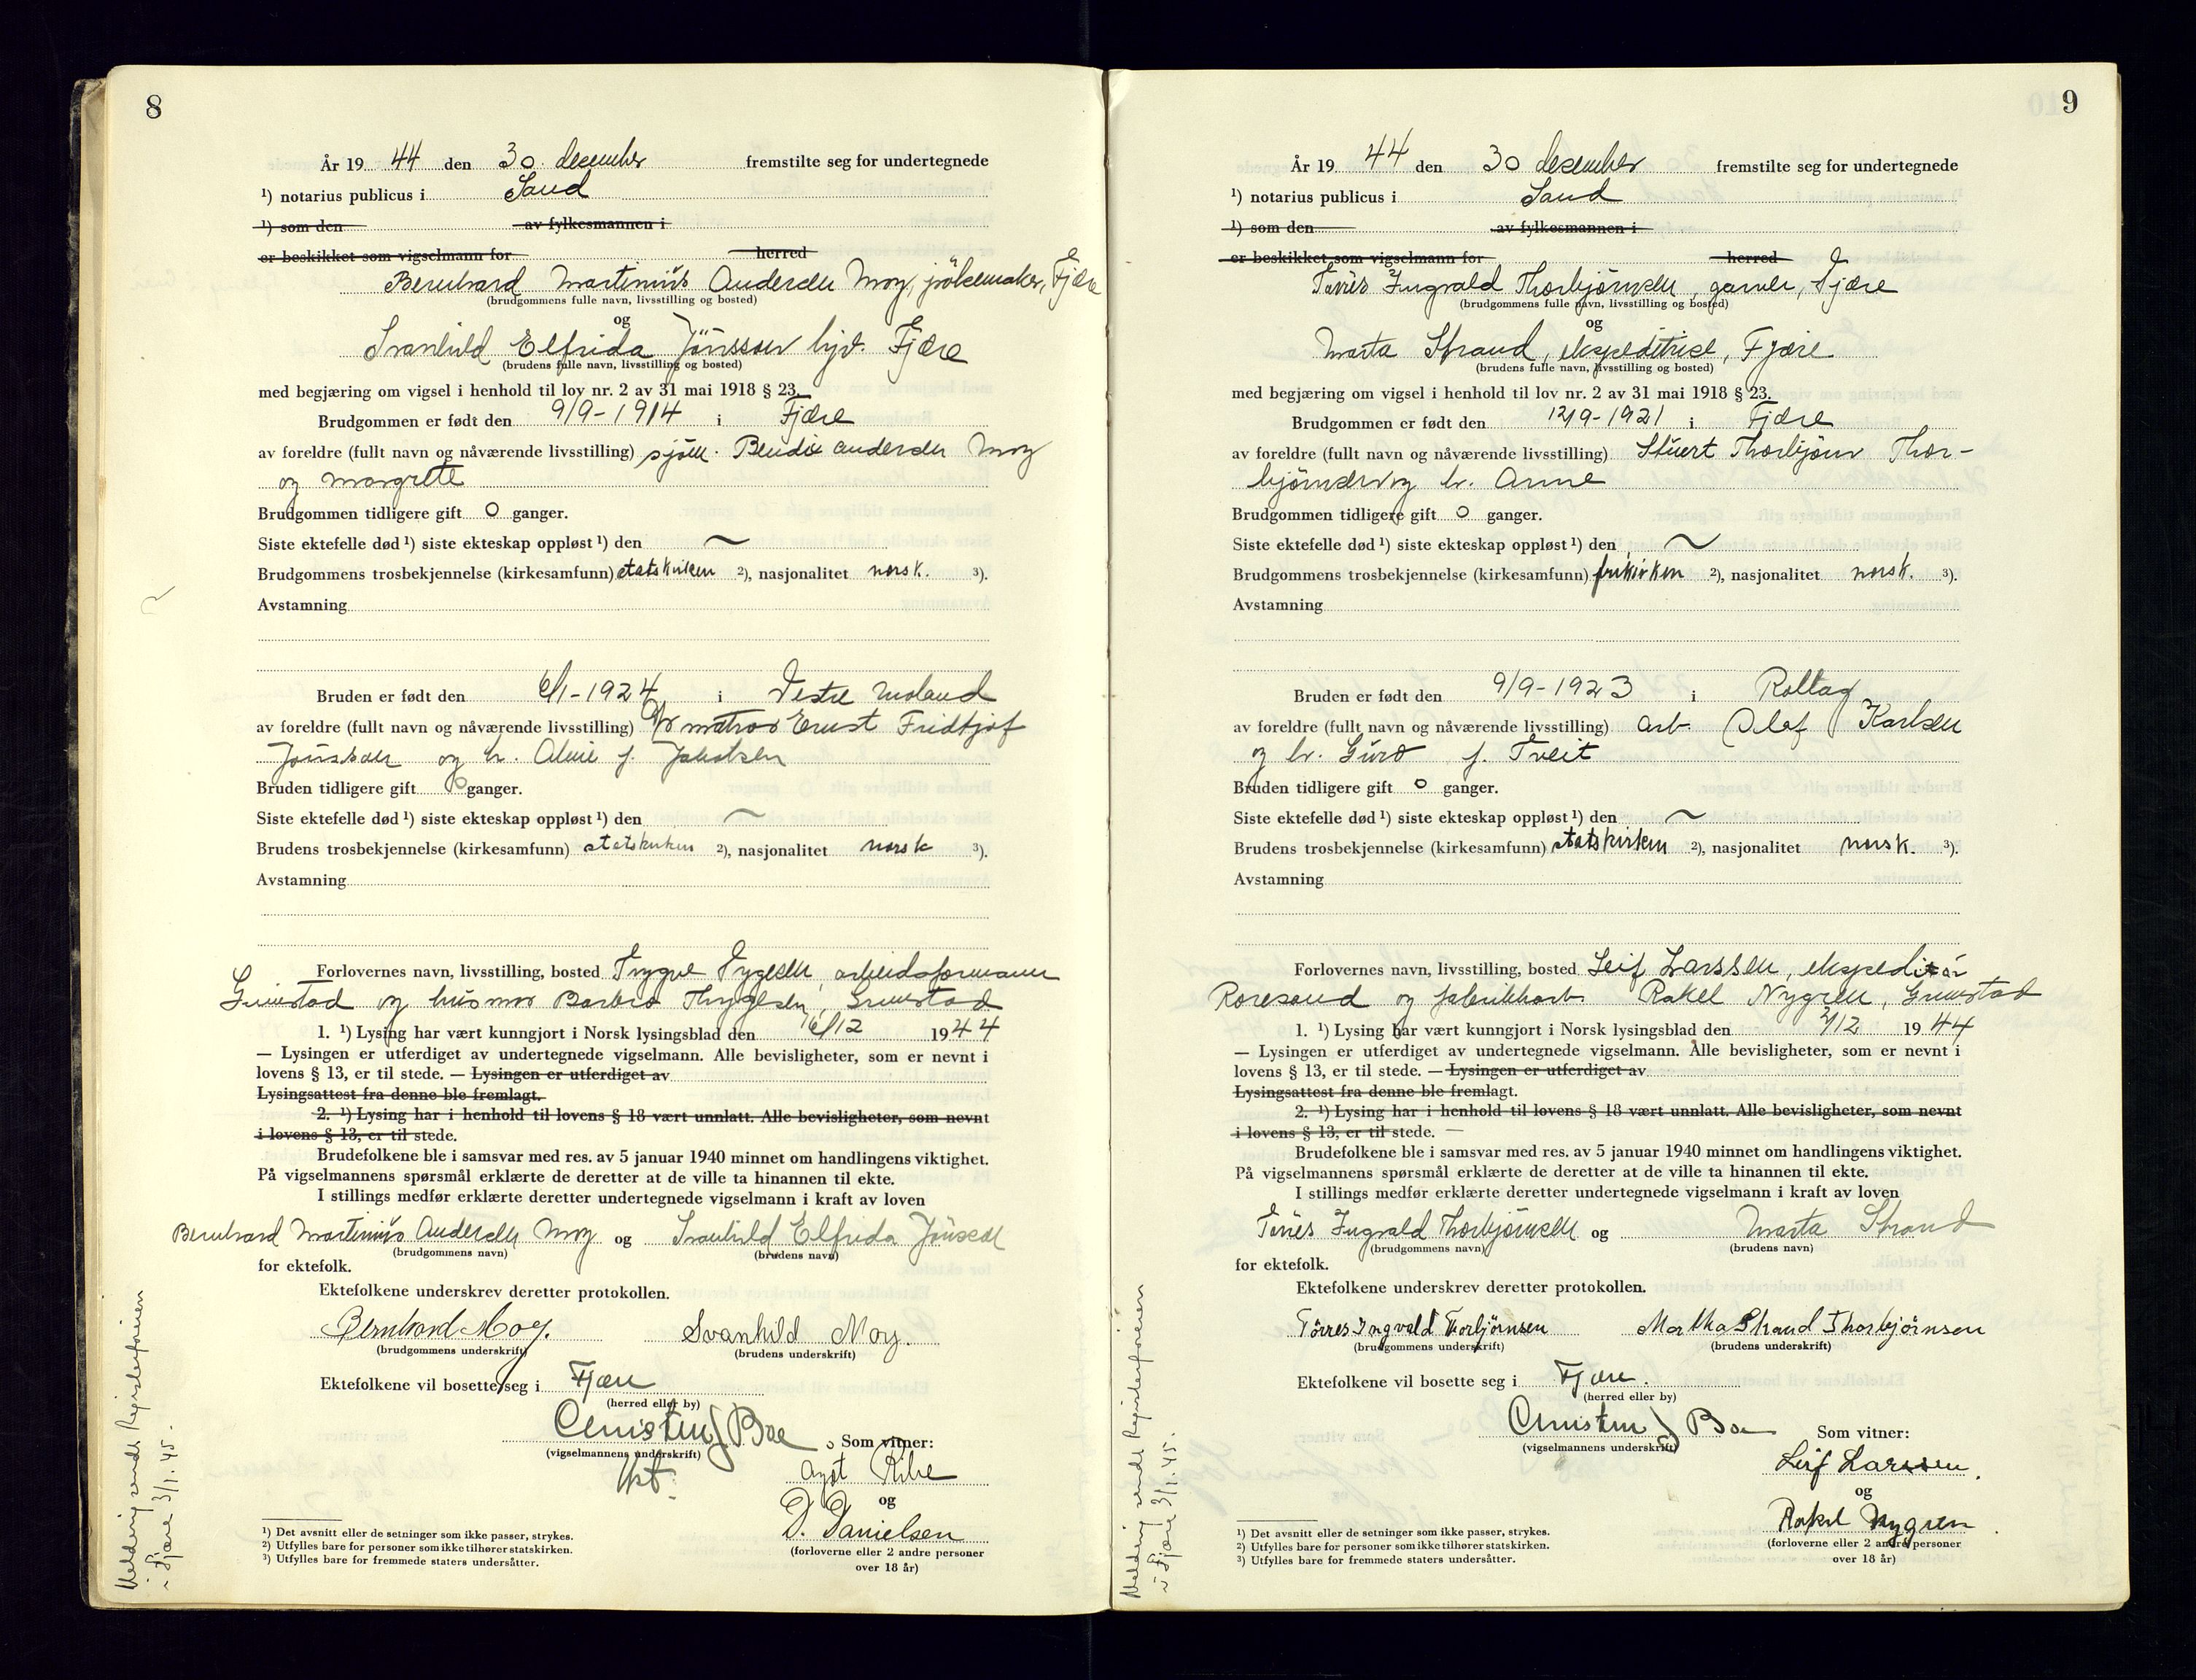 8
År 19 44 den 30. desember fremstilte seg for undertegnede
¹) notarius publicus i Sand
¹) som den av fylkesmannen i
er beskikket som vigselmann for herred
Bernhard Martinius Andersen Moy, jølsemaker, Fjære
(brudgommens fulle navn, livsstilling og bosted)
og
Svanhild Elfrida Jönsson hjv. Fjære
(brudens fulle navn, livsstilling og bosted)
med begjæring om vigsel i henhold til lov nr. 2 av 31 mai 1918 § 23.
Brudgommen er født den 9/9-1914 i Fjære
av foreldre (fullt navn og nåværende livsstilling) sjöm. Bendix Andersen Moy
og Margrete
Brudgommen tidligere gift 0 ganger.
Siste ektefelle død ¹) siste ekteskap oppløst ¹) den ~
Brudgommens trosbekjennelse (kirkesamfunn) statskirken ²), nasjonalitet norsk. ³).
Avstamning
Bruden er født den 6/1-1924 i Vestre Moland
av foreldre (fullt navn og nåværende livsstilling) matros Ernst Fridtjof
Jönsson og h. Almi f. Jakobsen
Bruden tidligere gift 0 ganger.
Siste ektefelle død ¹) siste ekteskap oppløst ¹) den ~
Brudens trosbekjennelse (kirkesamfunn) statskirken ²), nasjonalitet norsk ³).
Avstamning
Forlovernes navn, livsstilling, bosted Trygve Tygesen, arbeidsformann
Grimstad og husmor Barbro Thygesen, Grimstad
1. ¹) Lysing har vært kunngjort i Norsk lysingsblad den 16/12 1944
— Lysingen er utferdiget av undertegnede vigselmann. Alle bevisligheter, som er nevnt i
lovens § 13, er til stede. — Lysingen er utferdiget av
Lysingsattest fra denne ble fremlagt.
2. ¹) Lysing har i henhold til lovens § 18 vært unnlatt. Alle bevisligheter, som nevnt
i lovens § 13, er til stede.
Brudefolkene ble i samsvar med res. av 5 januar 1940 minnet om handlingens viktighet.
På vigselmannens spørsmål erklærte de deretter at de ville ta hinannen til ekte.
I stillings medfør erklærte deretter undertegnede vigselmann i kraft av loven
Bernhard Martinius Andersen Moy og Svanhild Elfrida Jönsson
(brudgommens navn) (brudens navn)
for ektefolk.
Ektefolkene underskrev deretter protokollen.
Bernhard Moy. Svanhild Moy.
(brudgommens underskrift) (brudens underskrift)
Ektefolkene vil bosette seg i Fjære
(herred eller by)
Christen J Boe Som vitner:
(vigselmannens underskrift)
kst. Agot Ribe
og
D. Danielsen
(forloverne eller 2 andre personer
over 18 år)
¹) Det avsnitt eller de setninger som ikke passer, strykes.
²) Utfylles bare for personer som ikke tilhører statskirken.
³) Utfylles bare for fremmede staters undersåtter.
Melding sendt Registerföreren
i Fjære 3/1.45.
9
År 19 44 den 30 desember fremstilte seg for undertegnede
¹) notarius publicus i Sand
¹) som den av fylkesmannen i
er beskikket som vigselmann for herred
Tørres Ingvald Thorbjørnsen, garver, Fjære
(brudgommens fulle navn, livsstilling og bosted)
og
Marta Strand, ekspeditrise, Fjære
(brudens fulle navn, livsstilling og bosted)
med begjæring om vigsel i henhold til lov nr. 2 av 31 mai 1918 § 23.
Brudgommen er født den 12/9-1921 i Fjære
av foreldre (fullt navn og nåværende livsstilling) Stuert Thorbjørn Thor-
bjørnsen og h. Anne
Brudgommen tidligere gift 0 ganger.
Siste ektefelle død ¹) siste ekteskap oppløst ¹) den ~
Brudgommens trosbekjennelse (kirkesamfunn) frikirken ²), nasjonalitet norsk. ³).
Avstamning
Bruden er født den 9/9-1923 i Rollag
av foreldre (fullt navn og nåværende livsstilling) arb. Olaf Karlsen
og h. Guro f. Tveit
Bruden tidligere gift 0 ganger.
Siste ektefelle død ¹) siste ekteskap oppløst ¹) den ~
Brudens trosbekjennelse (kirkesamfunn) statskirken ²), nasjonalitet norsk. ³).
Avstamning
Forlovernes navn, livsstilling, bosted Leif Larssen, ekspeditör
Roresand og fabrikkarb. Rakel Nygren, Grimstad
1. ¹) Lysing har vært kunngjort i Norsk lysingsblad den 2/12 1944
— Lysingen er utferdiget av undertegnede vigselmann. Alle bevisligheter, som er nevnt i
lovens § 13, er til stede. — Lysingen er utferdiget av
Lysingsattest fra denne ble fremlagt.
2. ¹) Lysing har i henhold til lovens § 18 vært unnlatt. Alle bevisligheter, som nevnt
i lovens § 13, er til stede. —
Brudefolkene ble i samsvar med res. av 5 januar 1940 minnet om handlingens viktighet.
På vigselmannens spørsmål erklærte de deretter at de ville ta hinannen til ekte.
I stillings medfør erklærte deretter undertegnede vigselmann i kraft av loven
Tørres Ingvald Thorbjørnsen og Marta Strand
(brudgommens navn) (brudens navn)
for ektefolk.
Ektefolkene underskrev deretter protokollen.
Tørres Ingvald Thorbjørnsen Martha Strand Thorbjørnsen
(brudgommens underskrift) (brudens underskrift)
Ektefolkene vil bosette seg i Fjære.
(herred eller by)
Christen J Boe Som vitner:
(vigselmannens underskrift)
Leif Larssen.
og
Rakel Nygren
(forloverne eller 2 andre personer
over 18 år)
¹) Det avsnitt eller de setninger som ikke passer, strykes.
²) Utfylles bare for personer som ikke tilhører statskirken.
³) Utfylles bare for fremmede staters undersåtter.
Melding sendt Registerföreren
i Fjære 3/1.45.